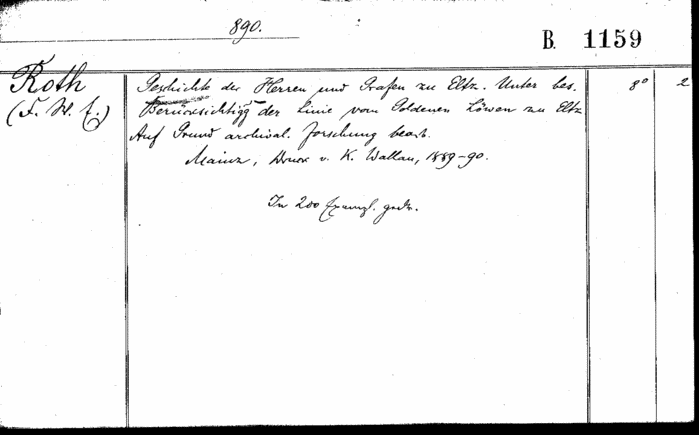 890.
B. 1159
Roth
(F. W. E.)
Geschichte der Herren und Grafen zu Eltz. Unter bes.
Berücksichtigg der Linie vom Goldenen Löwen zu Eltz
Auf Grund archival. Forschung bearb.
Mainz, Druck v. K. Wallau, 1889-90.
8° 2
In 200 Exempl. gedr.